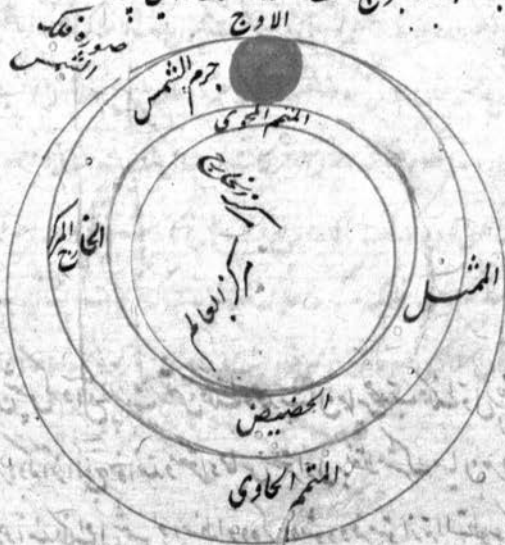 الاوج
صورة فلك
الشمس
جرم الشمس
المتمم المحوى
مركز الخارج
الخارج المركز
مركز العالم
الممثل
الحضيض
المتمم الحاوى